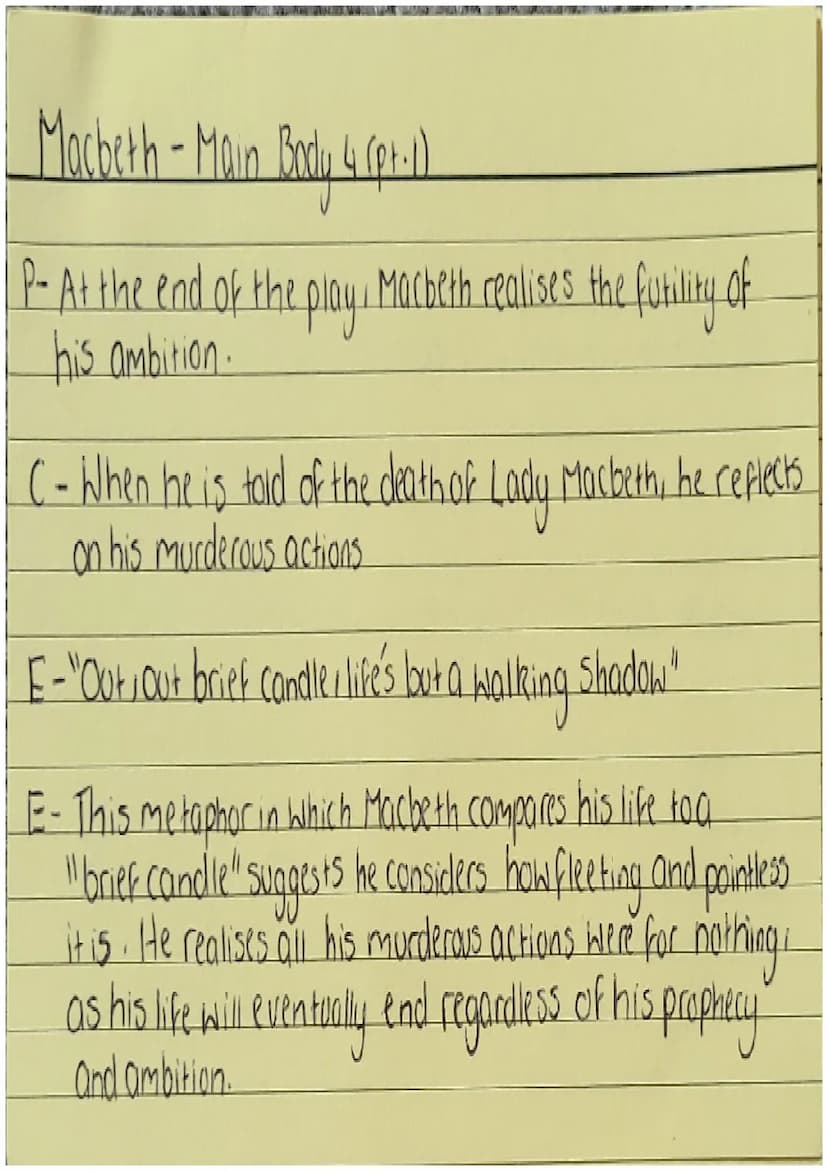 Macbeth - Main Body 4 (pt.1)
P- At the end of the play, Macbeth realises the futility of
his ambition.
C - When he is told of the death of Lady Macbeth, he reflects
on his murderous actions
E - "Out, out brief candle, life's but a walking shadow"
E - This metaphor in which Macbeth compares his life to a
"brief candle" suggests he considers how fleeting and pointless
it is. He realises all his murderous actions were for nothing,
as his life will eventually end regardless of his prophecy
and ambition.